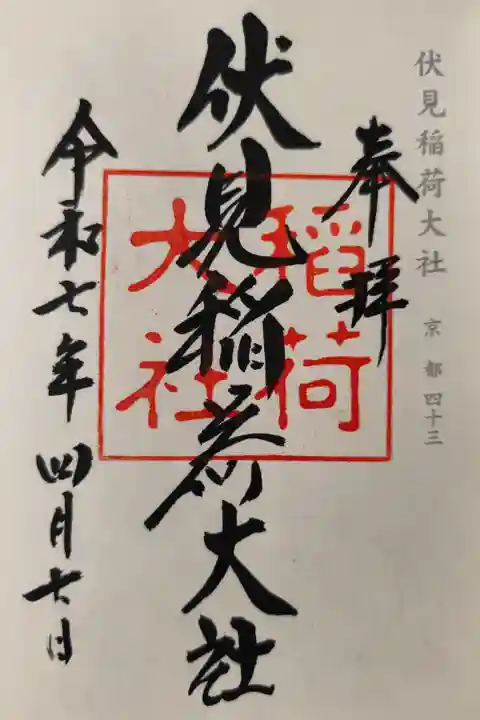 伏見稲荷大社 京都 四十三
奉拝
伏見稲荷大社
稲荷
大社
令和七年四月七日